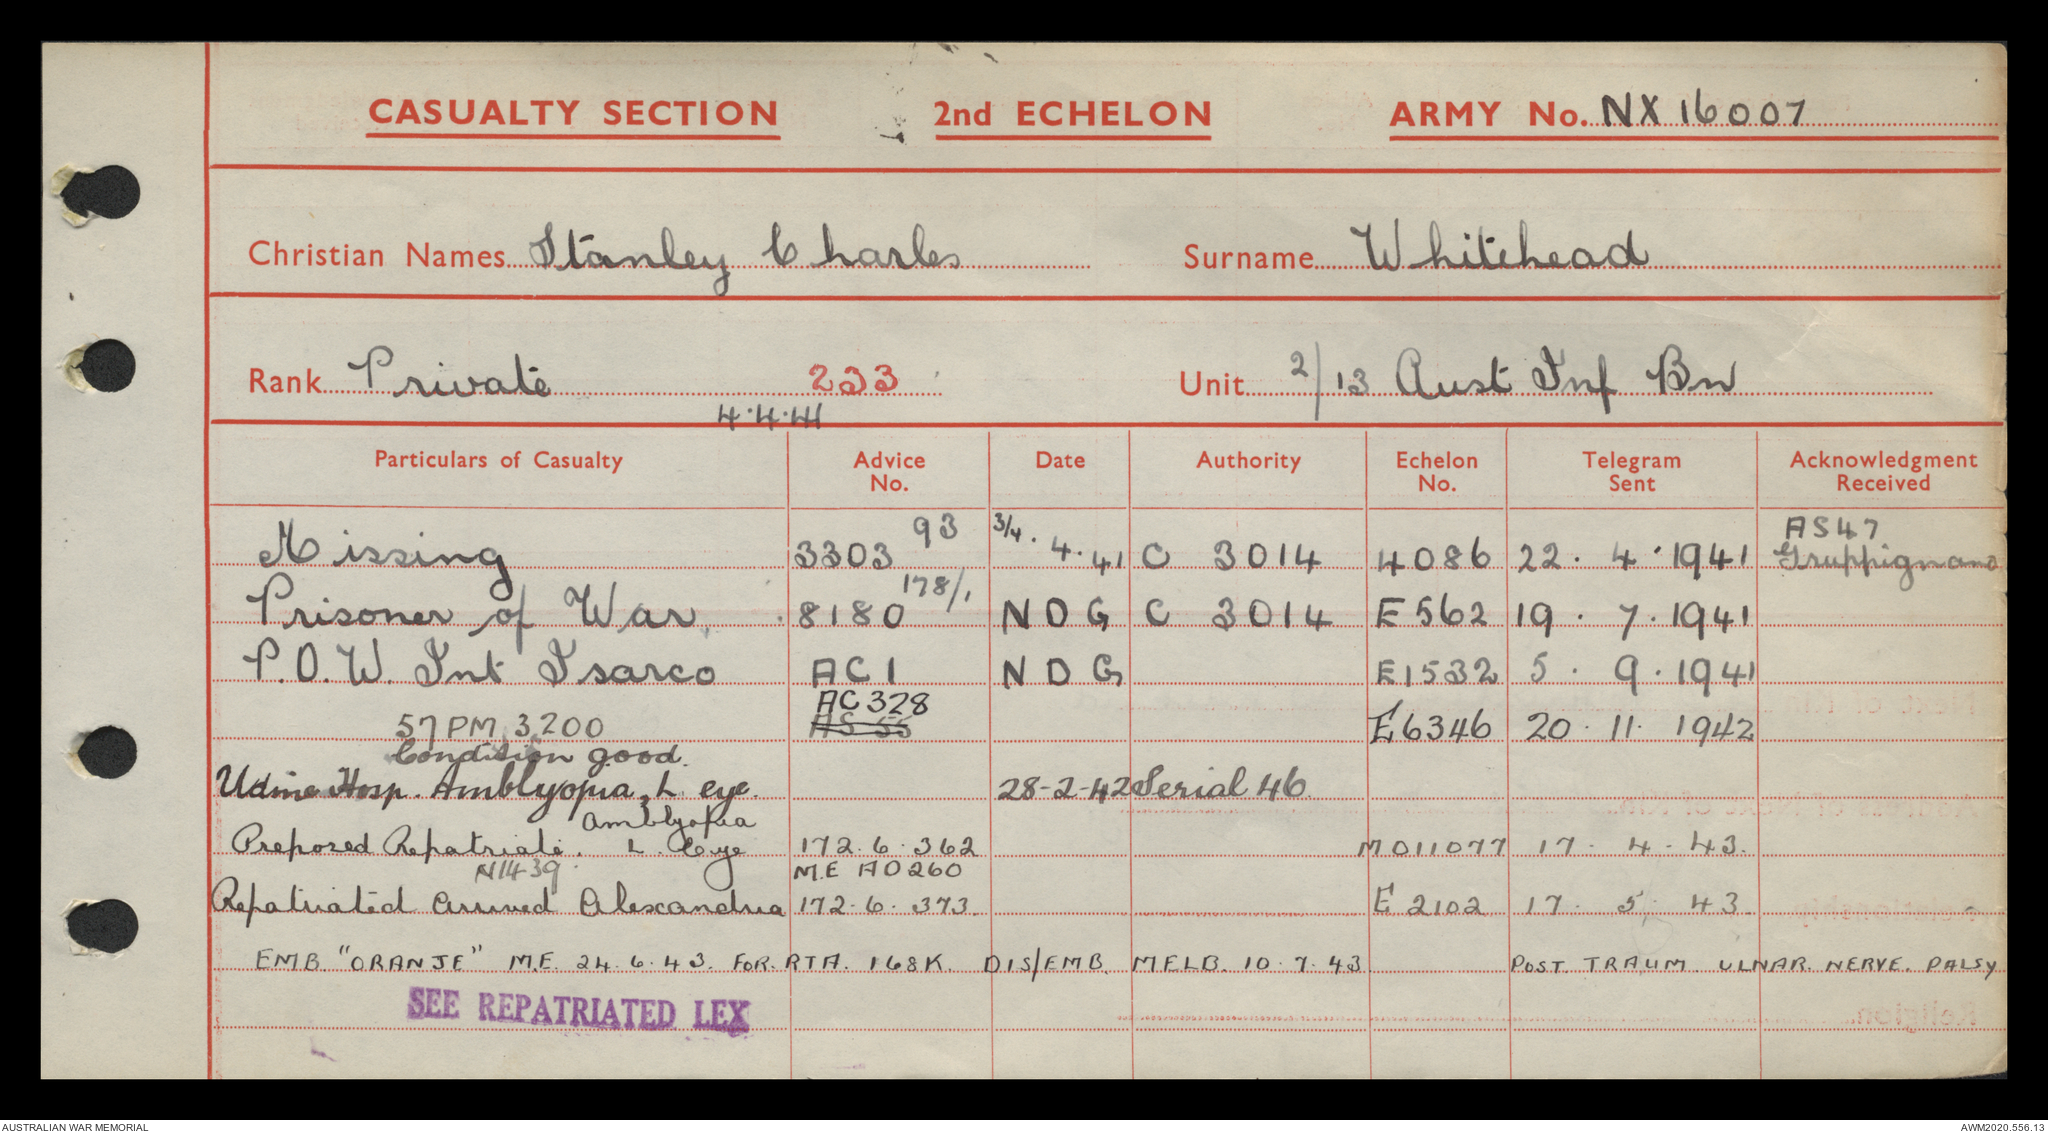 CASUALTY SECTION 2nd ECHELON ARMY No. NX 16007
Christian Names Stanley Charles Surname Whitehead
Rank Private 233 Unit 2/13 Aust Inf Bn
4.4.41
Particulars of Casualty Advice No. Date Authority Echelon No. Telegram Sent Acknowledgment Received
93 AS47
Missing 3303 3/4. 4. 41 C 3014 4086 22. 4. 1941 Gruppignano
178/1
Prisoner of War. 8180 N D G C 3014 E562 19. 7. 1941
P.O.W. Int Isarco AC1 N D G E1532 5. 9. 1941
AC 328
57 PM 3200 AS 55 E6346 20. 11. 1942
Condition good.
Udine Hosp. Amblyopia L eye. 28-2-42 Serial 46
Amblyopia
Proposed Repatriate. L. Eye 172.6.362 MO11077 17. 4. 43.
N1439. M.E AO260
Repatriated arrived Alexandria 172.6.373. E 2102 17. 5. 43.
EMB "ORANJE" M.E. 24.6.43. FOR. RTA. 168K. DIS/EMB. MELB. 10.7.43 POST TRAUM ULNAR. NERVE. PALSY
SEE REPATRIATED LEX
AUSTRALIAN WAR MEMORIAL AWM2020.556.13